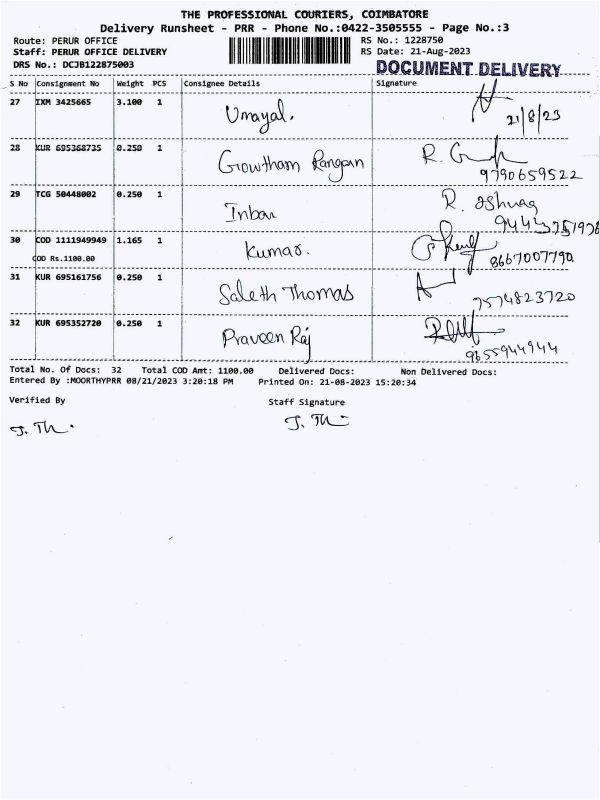 THE PROFESSIONAL COURIERS, COIMBATORE
Delivery Runsheet - PRR - Phone No.:0422-3505555 - Page No.:3
Route: PERUR OFFICE RS No.: 1228750
Staff: PERUR OFFICE DELIVERY RS Date: 21-Aug-2023
DRS No.: DCJB122875003 DOCUMENT DELIVERY
S No Consignment No Weight PCS Consignee Details Signature
27 IXM 3425665 3.100 1 Umayal. 21/8/23
28 KUR 695368735 0.250 1 Gowtham Rangan R.
9790659522
29 TCG 50448002 0.250 1 Inban R.
30 COD 1111949949 1.165 1 Kumar.
COD Rs.1100.00 8667007790
31 KUR 695161756 0.250 1 Saleth Thomas
7574823720
32 KUR 695352720 0.250 1 Praveen Raj
9655944944
Total No. Of Docs: 32 Total COD Amt: 1100.00 Delivered Docs: Non Delivered Docs:
Entered By :MOORTHYPRR 08/21/2023 3:20:18 PM Printed On: 21-08-2023 15:20:34
Verified By Staff Signature